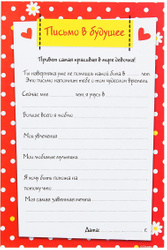 Письмо в будущее
Привет самая красивая в мире девочка!
Ты наверняка уже не помнишь какой была в ...... лет.
Это письмо напомнит тебе о том чудесном времени.
Сейчас мне ...... лет, я учусь в
Больше всего я люблю
Мои увлечения
Мои любимые мультики
Я хочу быть похожей на
потому что
Моя самая заветная мечта
Дата: г.